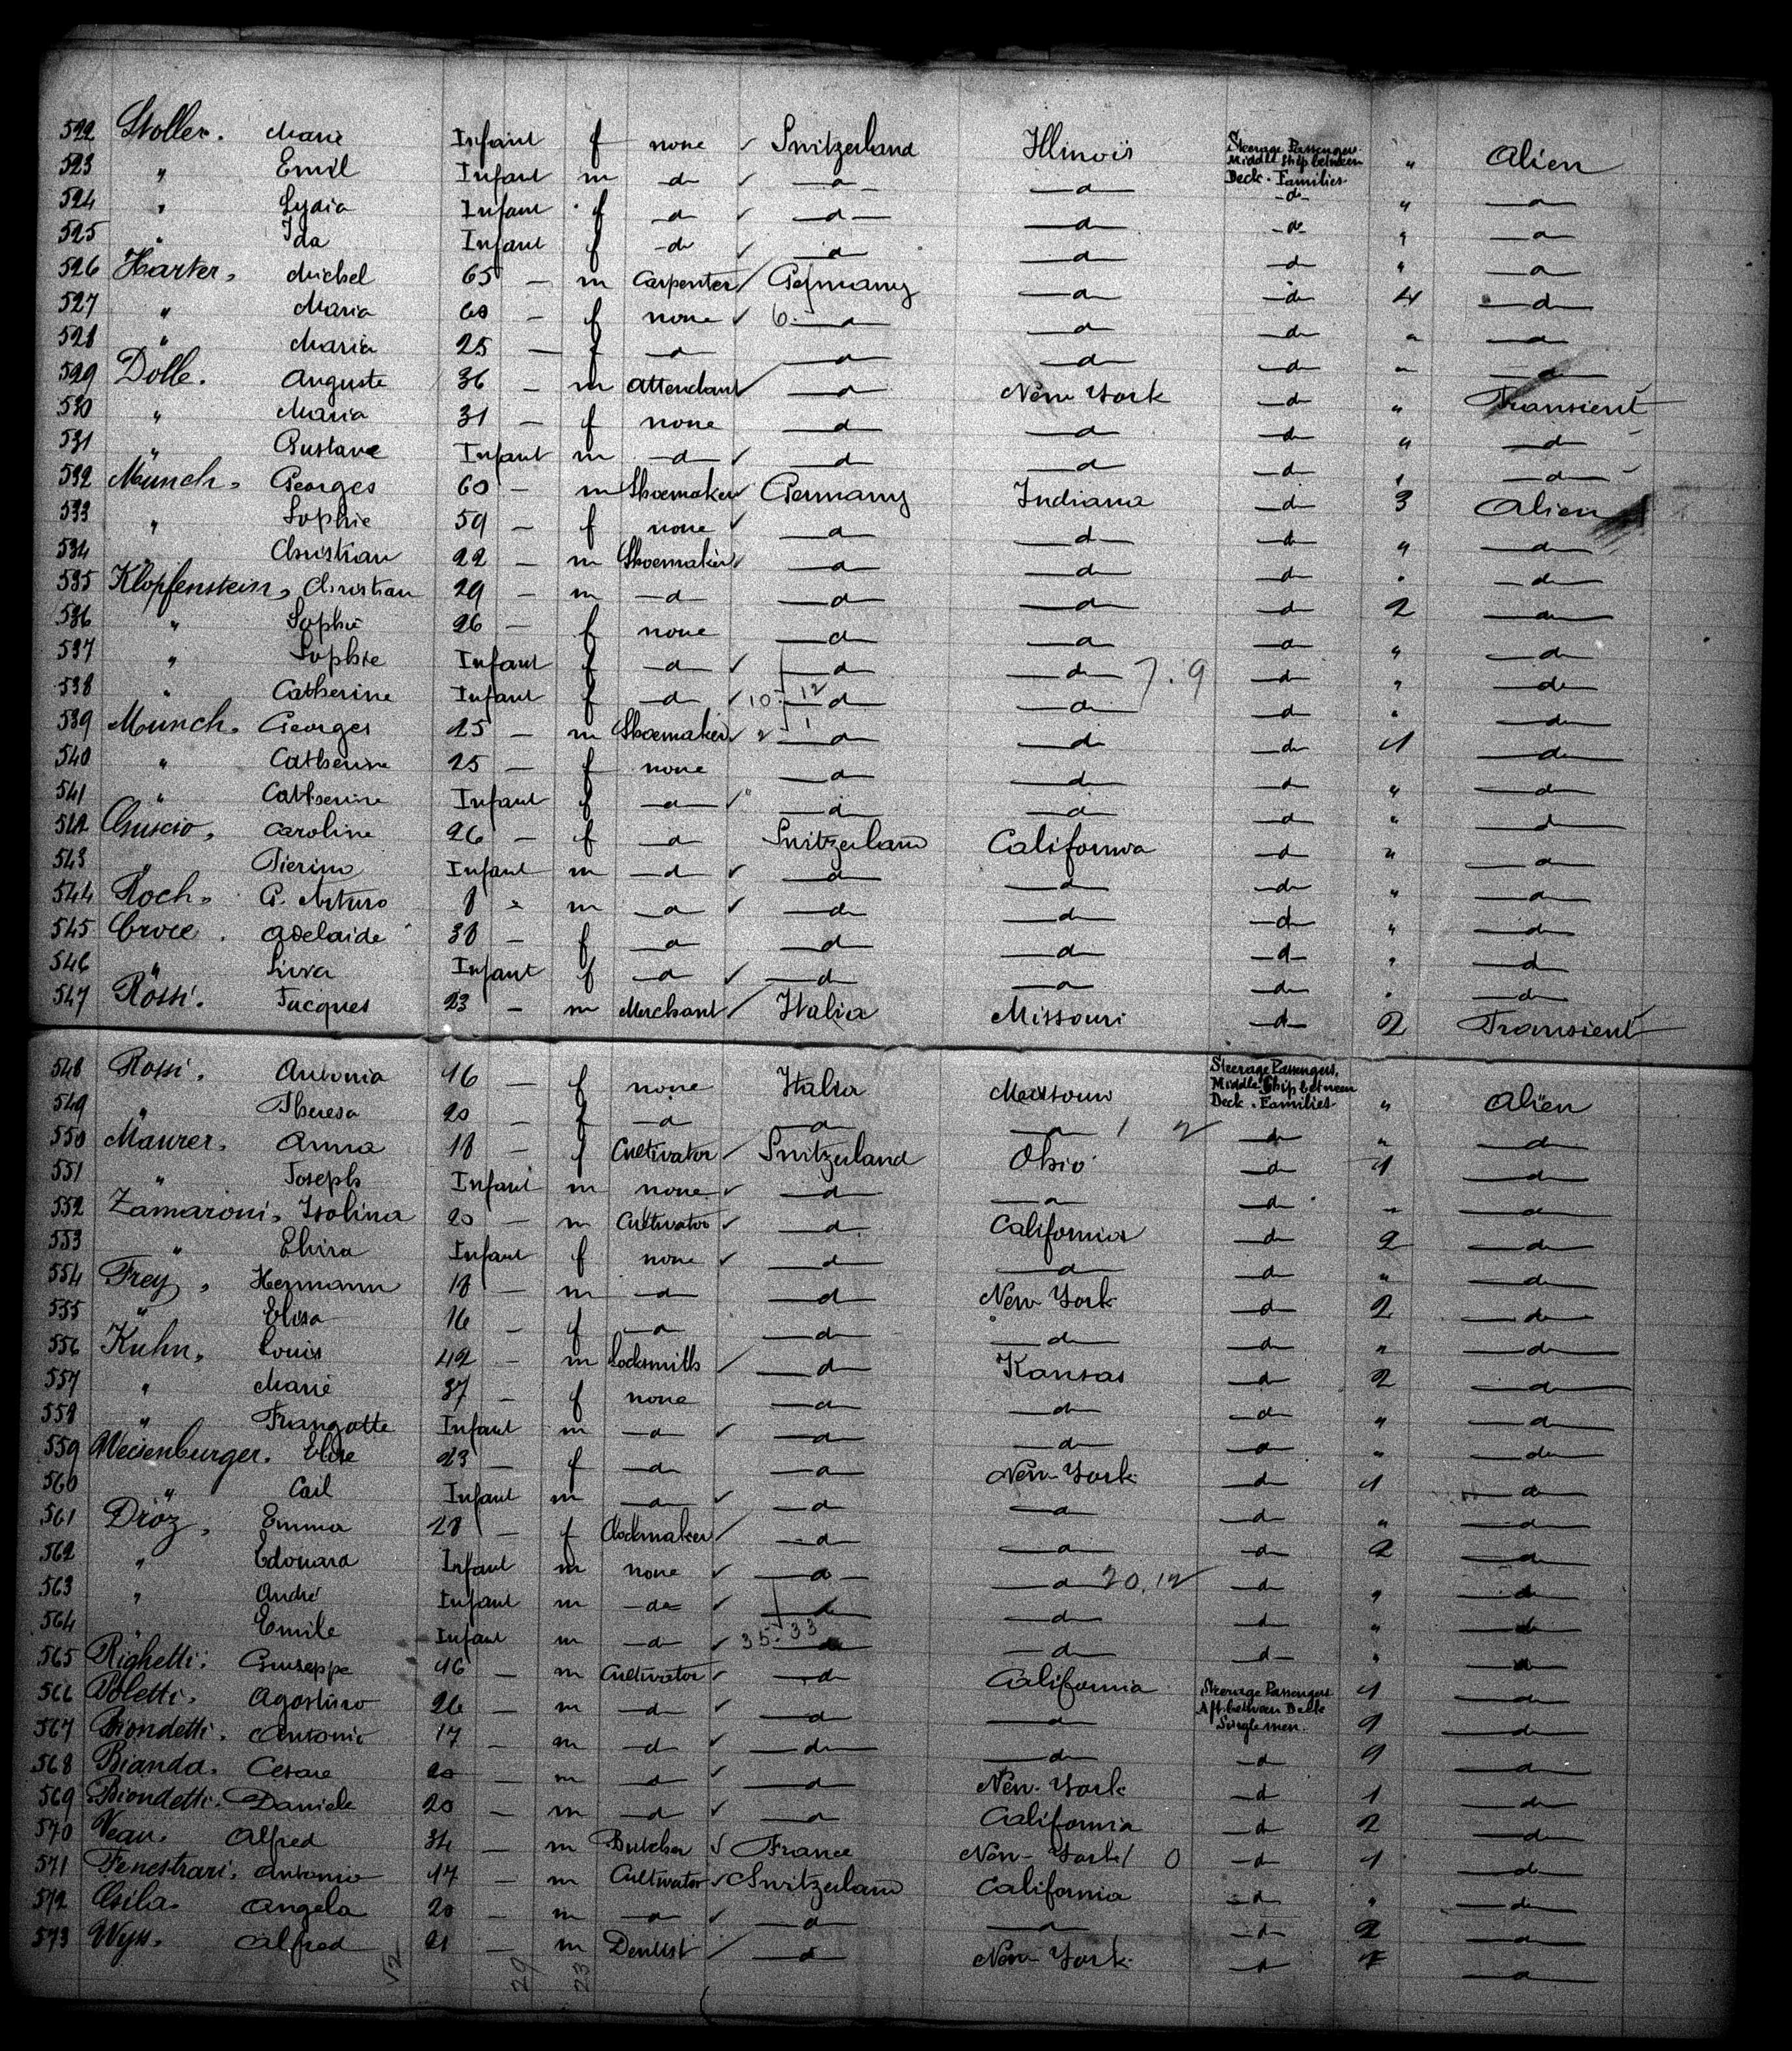 522 Stoller. Marie Infant f none ✓ Switzerland Illinois Steerage Passengers Middle Ship between Deck. Families " Alien
523 " Emil Infant m d ✓ d d d " d
524 " Lydia Infant f d ✓ d d d " d
525 " Ida Infant f d ✓ d d d " d
526 Harter, Michel 65 – m Carpenter ✓ Germany d d 4 d
527 " Maria 60 – f none ✓ 6. d d d " d
528 " Maria 25 – f d d d d " d
529 Dolle. Auguste 36 – m Attendant ✓ d New York d " Transient
530 " Maria 31 – f none d d d " d
531 " Gustave Infant m d ✓ d d d " d
532 Münch, Georges 60 – m Shoemaker ✓ Germany Indiana d 3 Alien
533 " Sophie 59 – f none ✓ d d d " d
534 Christian 22 – m Shoemaker ✓ d d d " d
535 Klopfenstein, Christian 29 – m d d d d 2 d
536 " Sophie 26 – f none d d d " d
537 " Sophie Infant f d ✓ d d 7.9 d " d
538 " Catherine Infant f d ✓ 10. 12 d d d " d
539 Münch. Georges 25 – m Shoemaker ✓ 2 1 d d d 1 d
540 " Catherine 25 – f none d d d " d
541 " Catherine Infant f d ✓ d d d " d
542 Caroline 26 – f d Switzerland California d " d
543 " Pierino Infant m d ✓ d d d " d
544 Roch, G. Arturo 8 m d ✓ d d d " d
545 Croce. Adelaide 38 – f d d d d " d
546 " Infant f d ✓ d d d " d
547 Rossi. Jacques 23 – m Merchant ✓ Italia Missouri d 2 Transient
548 Rossi, Antonia 46 – f none Italia Missouri Steerage Passengers, Middle Ship between Deck. Families " Alien
549 " Theresa 20 – f d d d 1 2 d " d
550 Maurer, Anna 18 – f Cultivator ✓ Switzerland Ohio d 1 d
551 " Joseph Infant m none ✓ d d d " d
552 Zamaroni, Isolina 20 – m Cultivator ✓ d California d 2 d
553 " Elvira Infant f none ✓ d d d " d
554 Frey, Hermann 18 – m d d New York d 2 d
555 " Elisa 16 – f d d d d " d
556 Kuhn, Louis 42 – m Locksmith ✓ d Kansas d 2 d
557 " Marie 37 – f none d d d " d
558 " Infant m d ✓ d d d " d
559 Weisenburger. Elise 23 – f d d New York d 1 d
560 " Carl Infant m d ✓ d d d " d
561 Droz, Emma 28 – f Clockmaker ✓ d d d 2 d
562 " Edouard Infant m none ✓ d d 20.12 d " d
563 " André Infant m d ✓ d d d " d
564 Emile Infant m d ✓ 35.33 d d d " d
565 Righetti. Giuseppe 46 – m Cultivator ✓ d California Steerage Passengers Aft between Deck Single men. 1 d
566 Poletti. Agostino 26 – m d ✓ d d 2 d
567 Biondetti. Antonio 17 – m d ✓ d d d d
568 Bianda. Cesare 20 – m d ✓ d New York d 1 d
569 Biondetti. Daniele 20 – m d ✓ d California d 2 d
570 Alfred 34 – m Butcher ✓ France New York / 0 d 1 d
571 Fenestrari. Antonio 47 – m Cultivator ✓ Switzerland California d " d
572 Angela 20 – m d ✓ d d d 2 d
573 Wyss. Alfred 21 – m Dentist / d New York d d
29 23